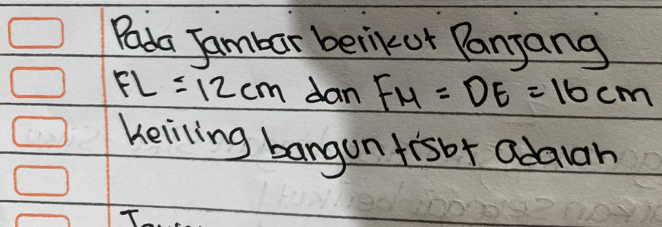 Pada Jambar berikut Panjang
FL = 12 cm dan FM = DE = 16 cm
keliling bangun trsbt adalah